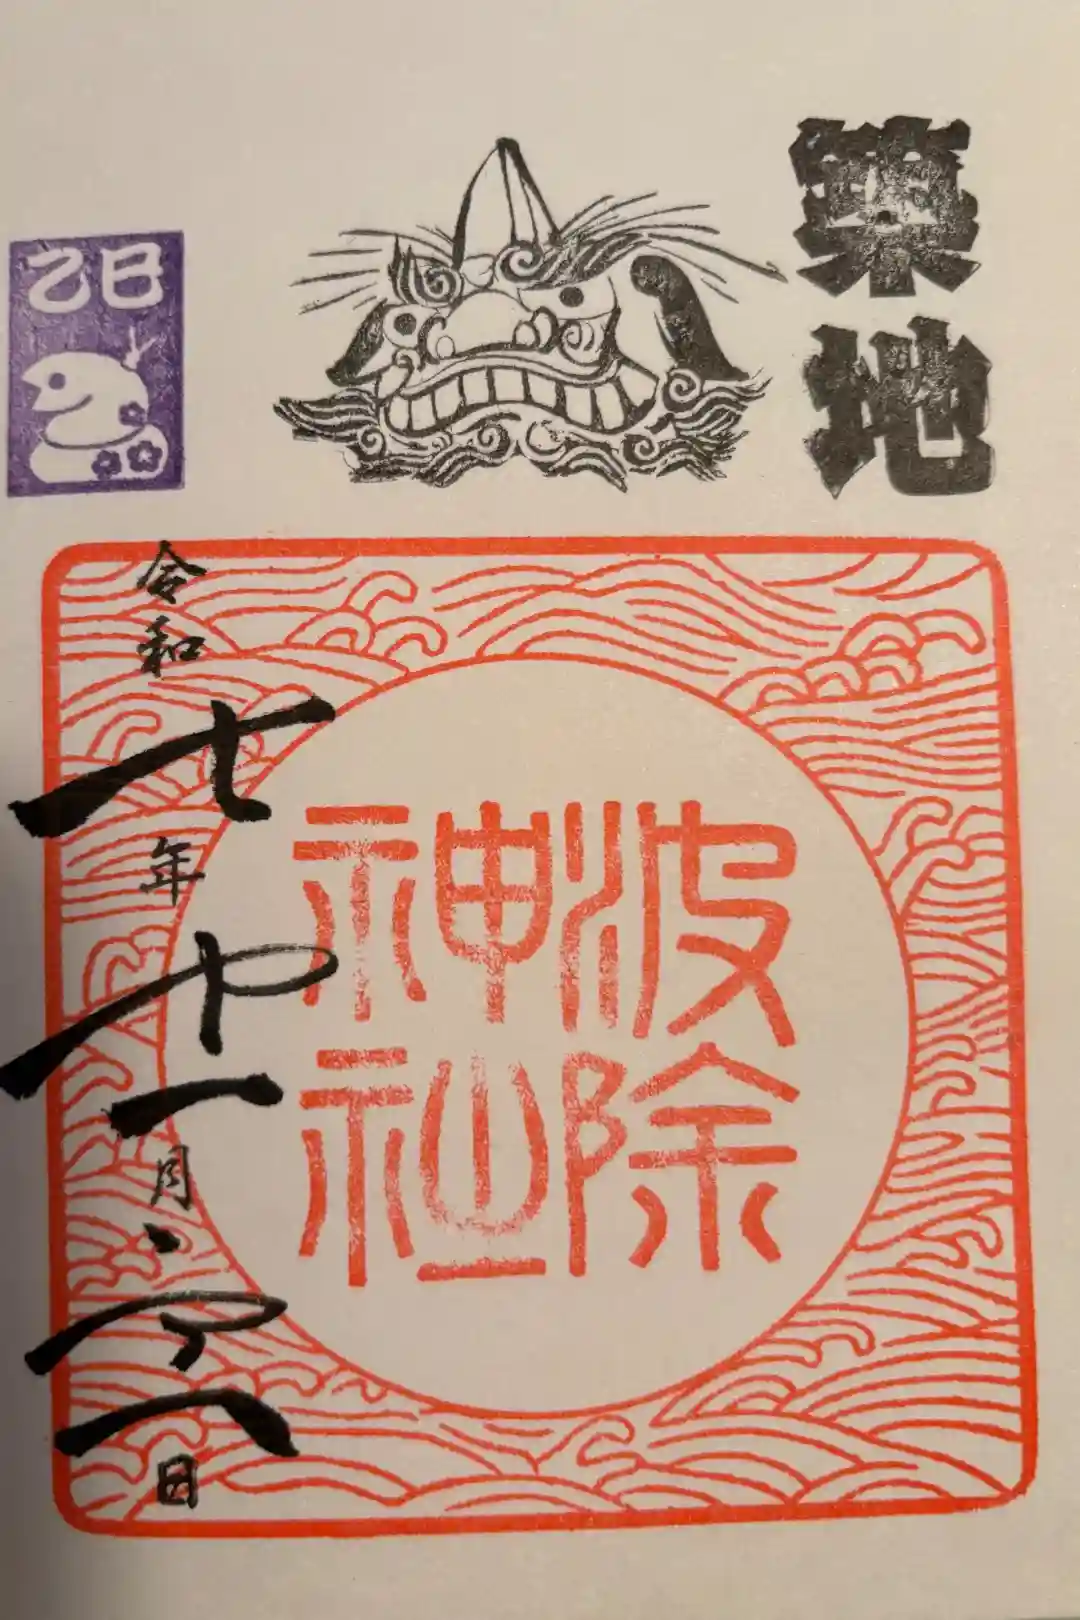 築地
波除
神社
乙巳
令和七年十一月 日